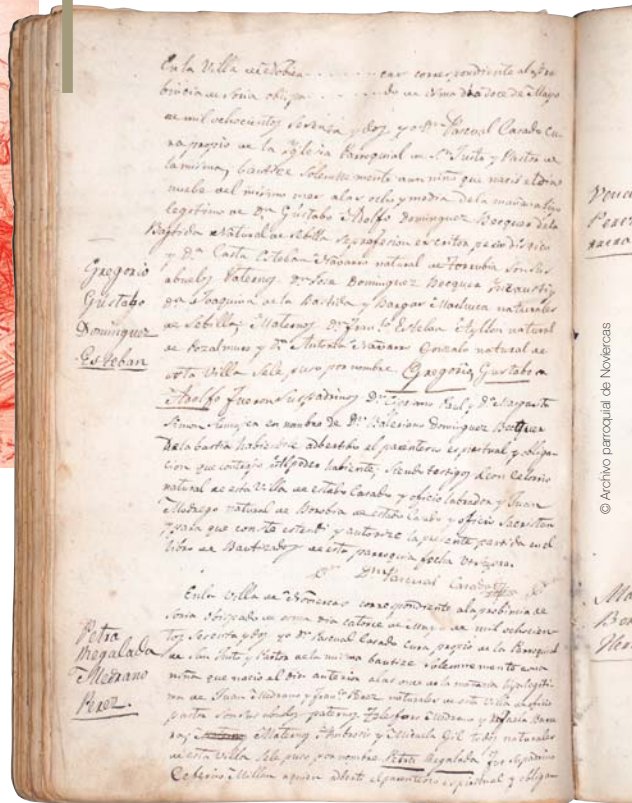 En la Villa de Nobier . . . . . . . cas correspondiente al pro
bincia de Soria obispa . . . . . do de Osma dia doce de Mayo
de mil ochocientos sesenta y dos yo Dn. Pascual Casado Cu-
ra propio de la Iglesia Parroquial de Sn. Justo y Pastor de
la misma, bautize Solemnemente a un niño que nacio el dia
nuebe del mismo mes a las ocho y media de la mañana hijo
legitimo de Dn. Gustabo Adolfo Dominguez Becquer de la
Bastida Natural de Sebilla de profesion escritor periodistico
y Da. Casta Esteban Nabarro natural de Torrubia Son sus
abuelos Paternos Dn. Jose Dominguez Becquer Inzausti y
Da. Joaquina de la Bastida y Bargas Machuca naturales
de Sebilla; Maternos Dn. Franco. Esteban Ayllon natural
de Pozalmuro y Da. Antonia Nabarro Gonzalo natural de
esta Villa Se le puso por nombre Gregorio, Gustabo
Adolfo fueron Sus padrinos Dn. Cipriano Paul y Da. Margarita
Simon en nonbre de Dn. Baleriano Dominguez Becquer
de la bastida habiendole advertido el parentesco espiritual y obliga-
cion que contrajo poder habiente, siendo testigos Leon Celorio
natural de esta Villa de estado Casado y oficio labrador y Juan
natural de Borobia de estado Casado y oficio Sacristan
y para que conste estendi y autorize la presente partida en el
libro de Bautizados de esta parroquia fecha ut supra.
Dn. Pascual Casado
Gregorio
Gustabo
Dominguez
Esteban
En la Villa de Nobiercas correspondiente a la probincia de
Soria Obispado de osma dia catorce de Mayo de mil ochocien-
tos Sesenta y dos yo Dn. Pascual Casado Cura propio de la Parroquial
de San Justo y Pastor de la misma bautize Solemnemente a una
niña que nacio el dia anterior a las once de la mañana hija legiti-
ma de Juan Medrano y Franca. Perez naturales de esta Villa de oficio
pastor Son sus abuelos paternos Telesforo Medrano y Maria
Maternos Ambrosio y Micaela Gil todos naturales
de esta Villa Se le puso por nombre Petra Regalada fue Su padrino
Ceferino Millan a quien adberti el parentesco espiritual y obliga
Petra
Regalada
Medrano
Perez.
© Archivo parroquial de Noviercas